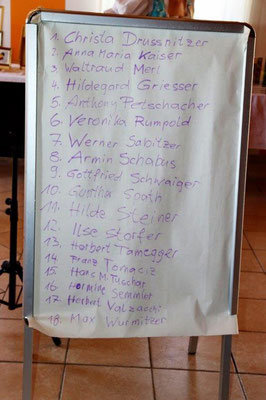 1. Christa Drussnitzer
2. Anna Maria Kaiser
3. Waltraud Merl
4. Hildegard Griesser
5 Anthony Petschacher
6. Veronika Rumpold
7. Werner Sabitzer
8. Armin Schatus
9. Gottfried Schwaiger
10. Günther Spath
11. Hilde Steiner
12. Ilse Storfer
13. Herbert Tamegger
14 Franz Tomaciz
15 Hans M. Tuschar
16 Hermine Semmler
17. Herbert Valzacchi
18. Max Wurmitzer